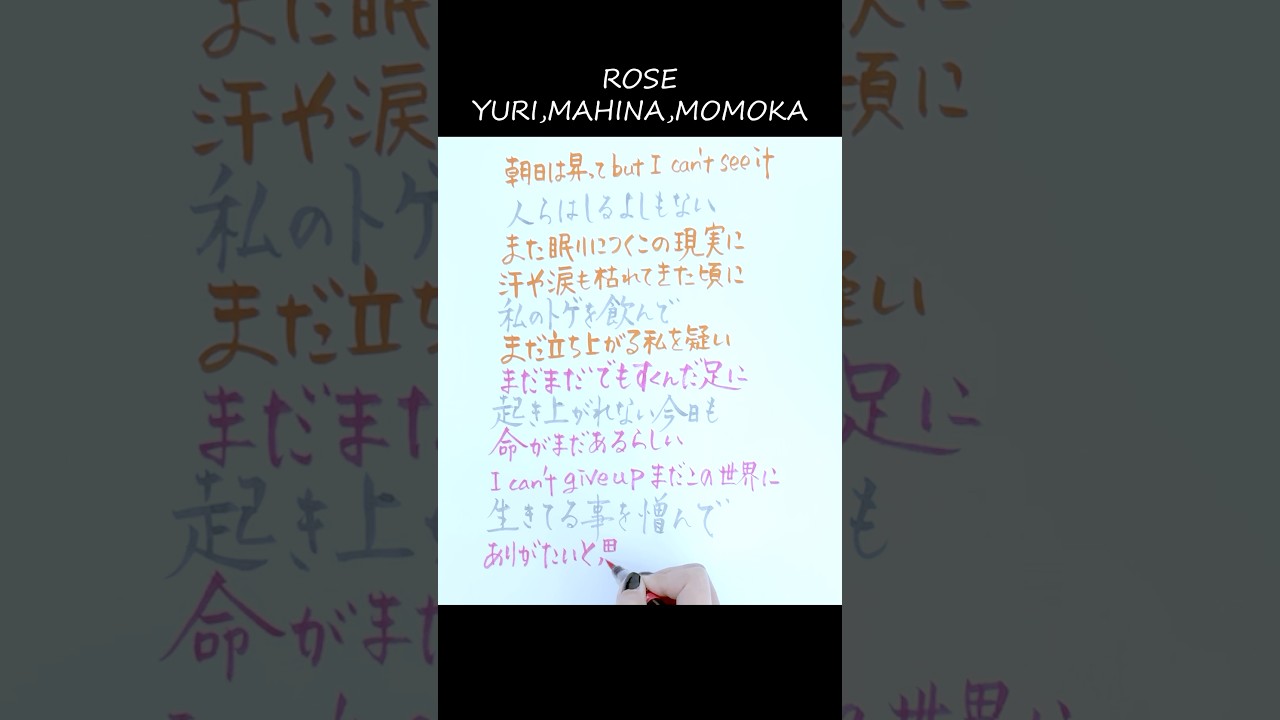 ROSE
YURI,MAHINA,MOMOKA
朝日は昇って but I can't see it
人らはしるよしもない
また眠りにつくこの現実に
汗や涙も枯れてきた頃に
私のトゲを飲んで
まだ立ち上がる私を疑い
まだまだでもすくんだ足に
起き上がれない今日も
命がまだあるらしい
I can't give up まだこの世界に
生きてる事を憎んで
ありがたいと思